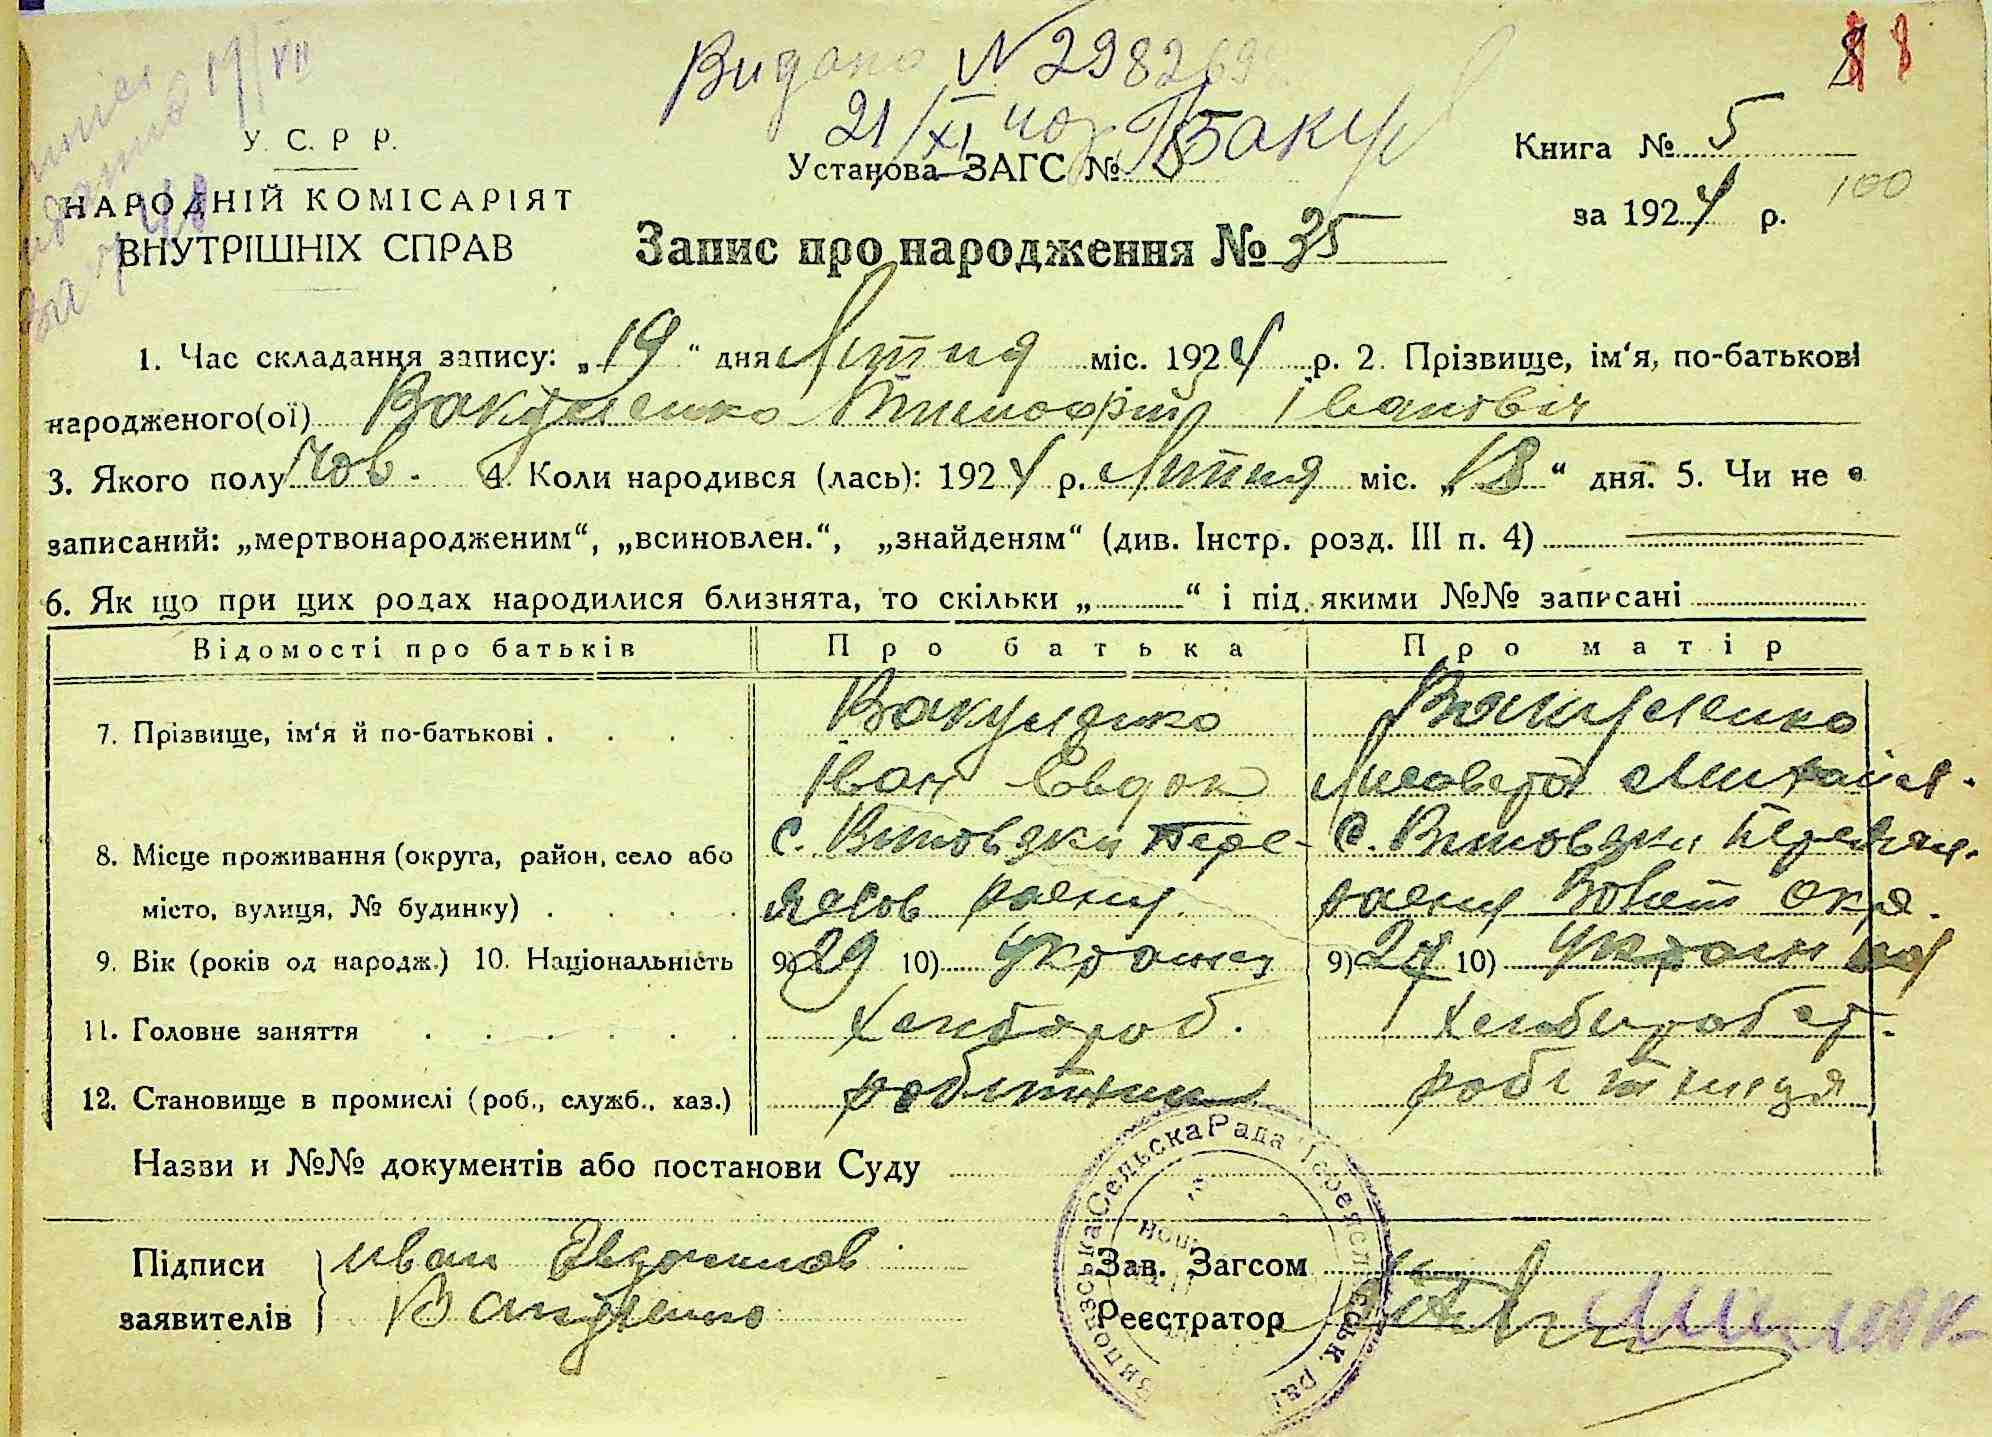 Видано № 298269
21/XI 40 р. Баку
88
У. С. Р Р.
НАРОДНІЙ КОМІСАРІЯТ
ВНУТРІШНІХ СПРАВ
Установа ЗАГС №
Книга № 5
за 1924 р.
100
Запис про народження № 35
1. Час складання запису: „19“ дня Липня міс. 1924 р. 2. Прізвище, ім‘я, по-батькові
народженого(ої) Вакуленко Тимофій Івановіч
3. Якого полу Чов. 4. Коли народився (лась): 1924 р. Липня міс. „18“ дня. 5. Чи не є
записаний: „мертвонародженим“, „всиновлен.“, „знайденям“ (див. Інстр. розд. III п. 4)
6. Як що при цих родах народилися близнята, то скільки „ “ і під якими №№ записані
Відомості про батьків Про батька Про матір
7. Прізвище, ім‘я й по-батькові . Вакуленко Вакуленко
Іван Євдок Лисавета Михайл.
8. Місце проживання (округа, район, село або с. Виповзки Пере- с. Виповзки Переясл.
місто, вулиця, № будинку) . яслов раену раену окр.
9. Вік (років од народж.) 10. Національність 9) 29 10) Украинец 9) 27 10) Украинка
11. Головне заняття Хлібороб. Хлібороб
12. Становище в промислі (роб., служб., хаз.) робітник робітниця
Назви и №№ документів або постанови Суду
Виповзська Сельска Рада Переяславськ. рай
Підписи заявителів Иван Евдокимов
Вакуленко
Зав. Загсом
Реєстратор